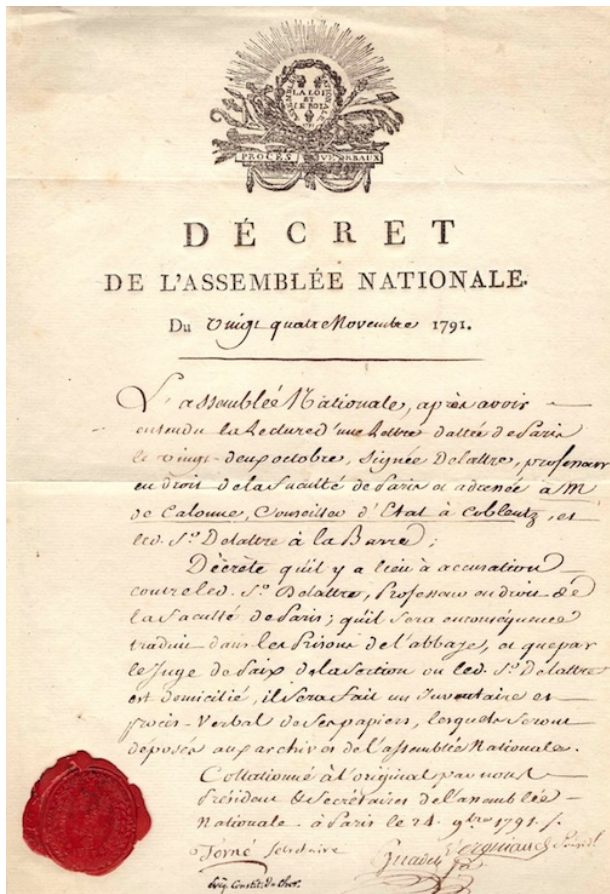 ASSEMBLÉE NATIONALE
LA LOI
ET
LE ROI
PROCÈS VERBAUX
DÉCRET
DE L'ASSEMBLÉE NATIONALE.
Du vingt quatre Novembre 1791.
L'assemblée Nationale, après avoir
entendu la Lecture d'une Lettre dattée de Paris
le vingt-deux octobre, signée Delattre, professeur
en droit de la faculté de Paris et adressée à M
de Calonne, Conseiller d'Etat à Coblentz, et
led. Sr. Delattre à la Barre;
Décrète qu'il y a lieu à accusation
contre led. Sr. Delattre, Professeur en droit de
la faculté de Paris; qu'il sera en conséquence
traduit dans les Prisons de l'abbaye, et que par
le Juge de Paix de la Section ou led. Sr. Delattre
est domicilié, il sera fait un Inventaire et
procès-Verbal de ses papiers, lesquels seront
déposés aux archives de l'assemblée Nationale.
Collationné à l'original par nous
Président & Secrétaires de l'assemblée
Nationale à Paris le 24. 9bre 1791./.
Torné Secrétaire Guadet Vergniaud Présidt